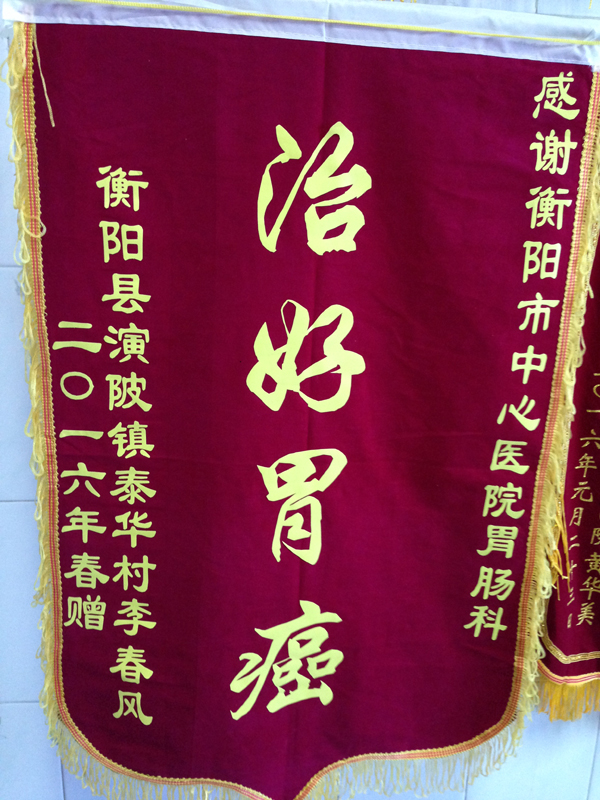 感谢衡阳市中心医院胃肠科
治好胃癌
衡阳县演陂镇泰华村李春风
二〇一六年春赠
一六年元月二十
黄华美